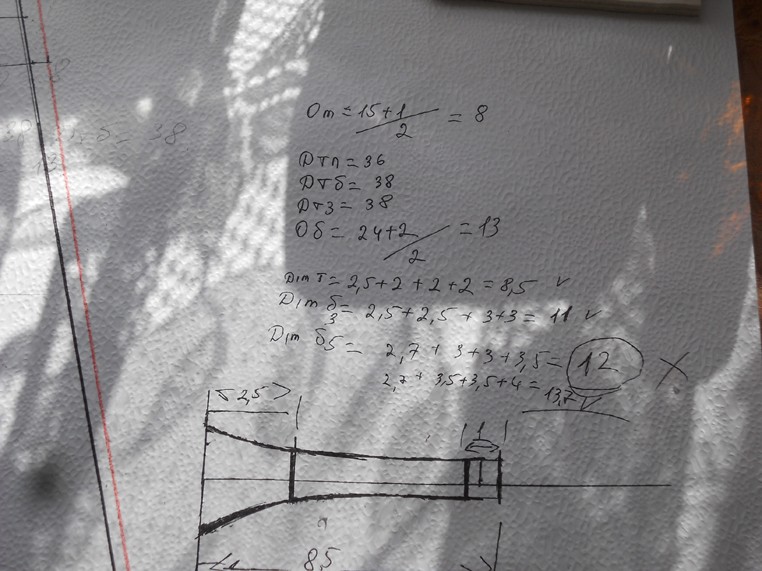 От = 15+1/2 = 8
Дтп = 36
Дтб = 38
Дтз = 38
Об = 24+2/2 = 13
Dim т = 2,5+2+2+2 = 8,5 v
Dim б3 = 2,5+2,5+3+3 = 11 v
Dim б5 = 2,7+3+3+3,5 = 12 X
2,7+3,5+3,5+4 = 13,7 v
2,5
1
8,5